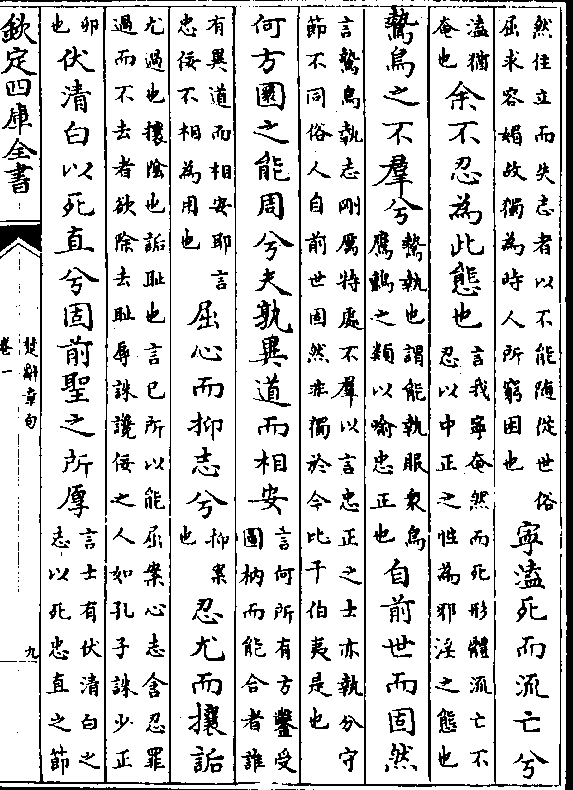 然住立而失志者以不能随從世俗
屈求容媚故獨為時人所窮困也
寧溘死而流亡兮
溘猶
奄也
余不忍為此態也
言我寧奄然而死形體流亡不
忍以中正之性為邪淫之態也
鷙鳥之不羣兮
鷙執也謂能執服衆鳥
鷹鸇之類以喻忠正也
自前世而固然
言鷙鳥執志剛厲特處不羣以言忠正之士亦執分守
節不同俗人自前世固然非獨於今比干伯夷是也
何方圜之能周兮夫孰異道而相安
言何所有方鑿受
圜枘而能合者誰
有異道而相安耶言
忠佞不相為用也
屈心而抑志兮
抑案
也
忍尤而攘詬
尤過也攘除也詬恥也言已所以能屈案心志含忍罪
過而不去者欲除去恥辱誅讒佞之人如孔子誅少正
卯
也
伏清白以死直兮固前聖之所厚
言士有伏清白之
志以死忠直之節
欽定四庫全書
楚辭章句
卷一
九